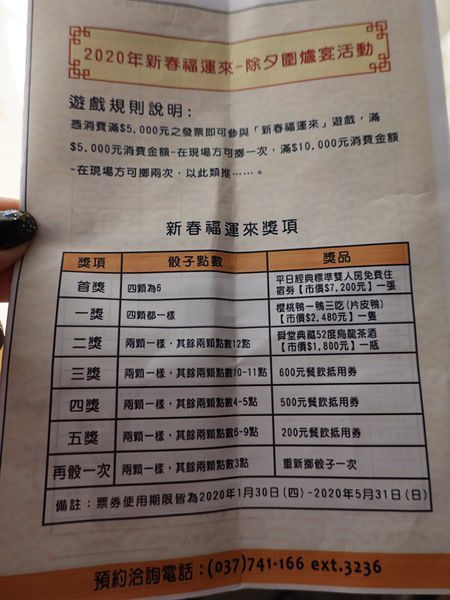 2020年新春福運來-除夕圍爐宴活動
遊戲規則說明:
憑消費滿$5,000元之發票即可參與「新春福運來」遊戲，滿
$5,000元消費金額-在現場方可擲一次，滿$10,000元消費金額
-在現場方可擲兩次，以此類推……。
新春福運來獎項
獎項 骰子點數 獎品
首獎 四顆為6 平日經典標準雙人房免費住
宿券【市價$7,200元】一張
一獎 四顆都一樣 櫻桃鴨一鴨三吃(片皮鴨)
【市價$2,480元】一隻
二獎 兩顆一樣，其餘兩顆點數12點 舜堂典藏52度烏龍茶酒
【市價$1,800元】一瓶
三獎 兩顆一樣，其餘兩顆點數10-11點 600元餐飲抵用券
四獎 兩顆一樣，其餘兩顆點數4-5點 500元餐飲抵用券
五獎 兩顆一樣，其餘兩顆點數6-9點 200元餐飲抵用券
再骰一次 兩顆一樣，其餘兩顆點數3點 重新擲骰子一次
備註：票券使用期限皆為2020年1月30日(四)-2020年5月31日(日)
預約洽詢電話：(037)741-166 ext.3236